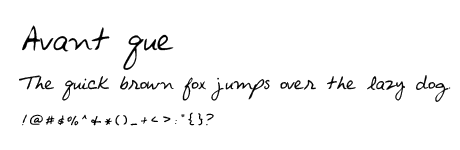 Avant que
The quick brown fox jumps over the lazy dog.
!@#$%^&*()_+<>:"{}?